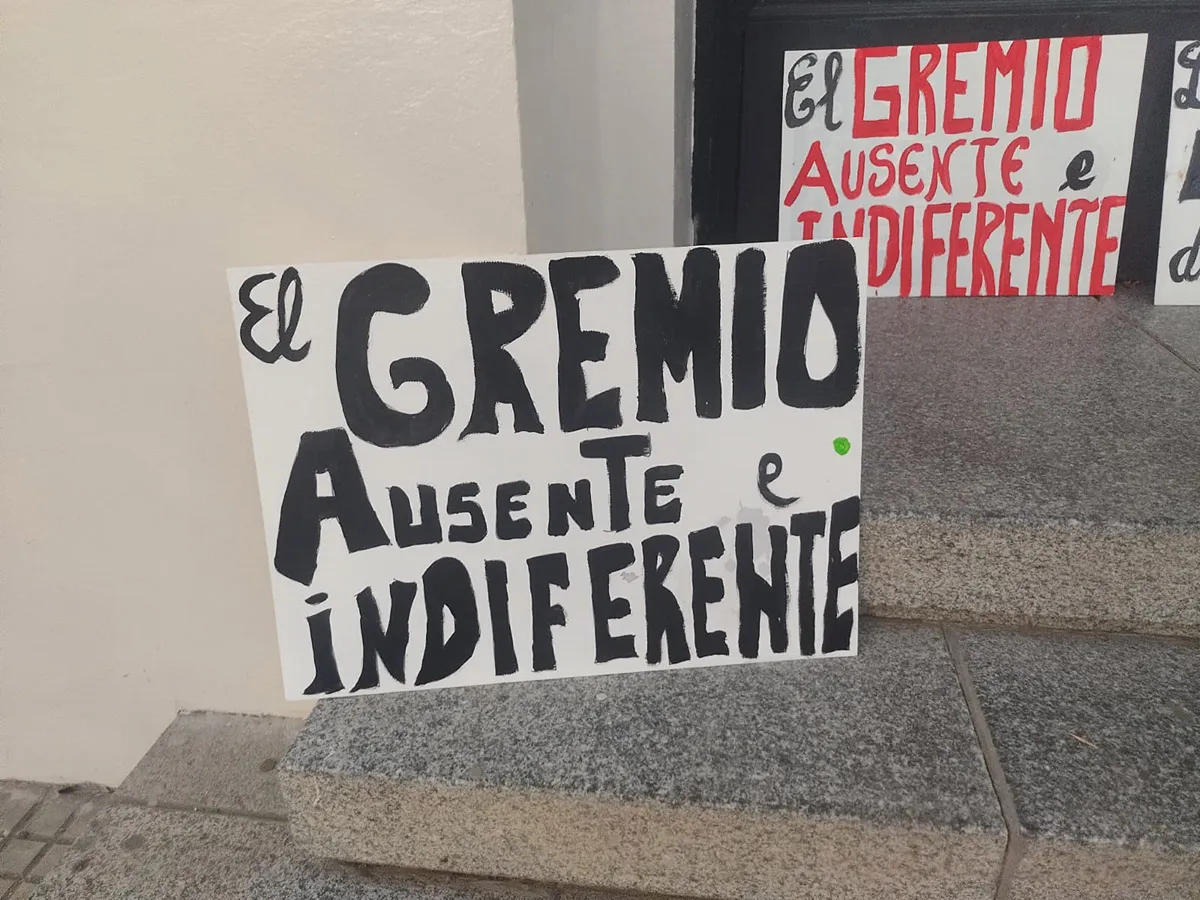 El GREMIO
AUSENTE e
INDIFERENTE
El GREMIO
AUSENTE e
iNDIFERENTE